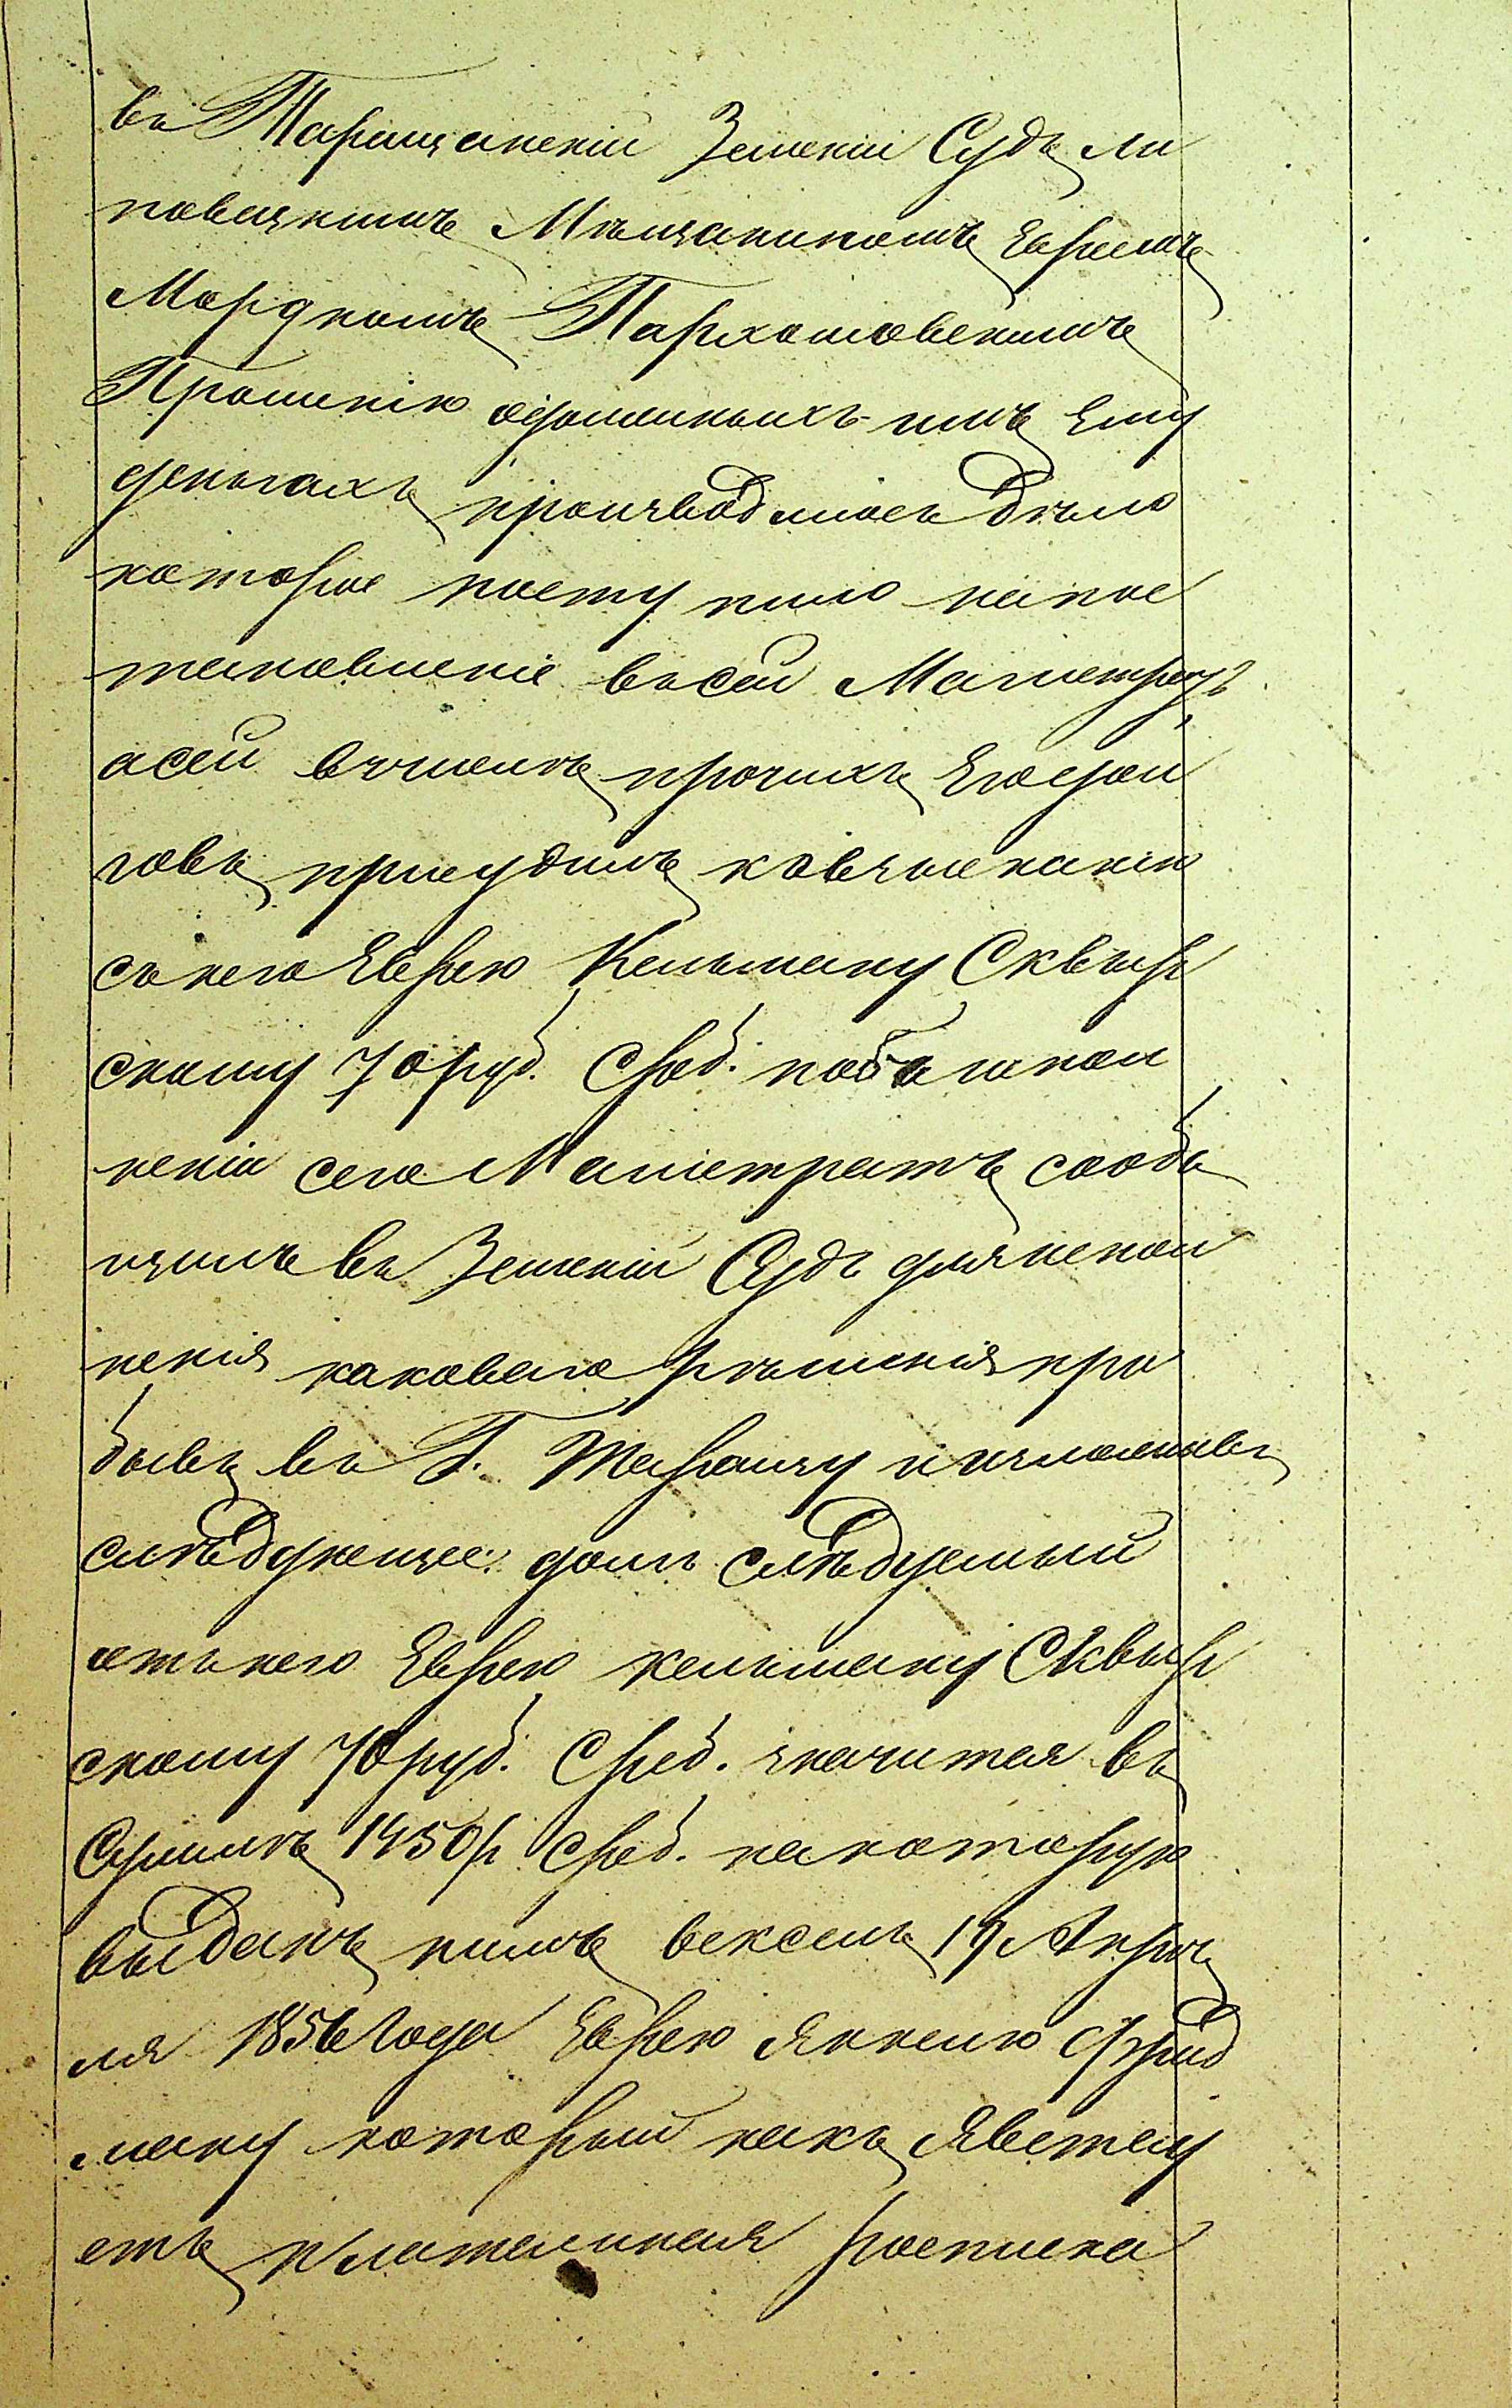 въ Таращанскій Земскій Судъ ли
повецкимъ Мѣщанином Евреемъ
Мордкомъ Пархомовскимъ
Прошенію одолженныхъ имъ Ему
деньгахъ, производилось дѣло
которое поступило на пос
тановленіе въ сей Магистратъ
а сей в числѣ прочихъ Его дол
говъ присудилъ ко взысканію
съ него Еврею Кельману Сквыр
скому 70 руб. Среб. по
ненія сего Магистратъ сооб
щилъ въ Земскій Судъ для испол
ненія каковаго рѣшенія при
бывъ въ Г. Таращу и изложивъ
слѣдующее: долгъ слѣдуемый
отъ него Еврею Кельману Сквыр
скому 70 руб. Среб. значится въ
Суммѣ 1450 р Среб. на которую
выданъ имъ вексель 19 Апрѣ
ля 1856 Года Еврею Янкелю Фрид
ману который какъ Явству
етъ платежная росписка